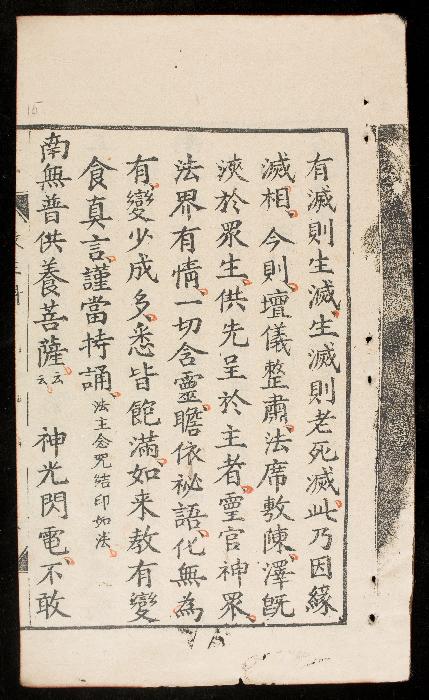 有滅則生滅生滅則老死滅此乃因緣
滅相今則壇儀整肅法席敷陳澤既
浹於眾生供先呈於主者靈官神眾
法界有情一切含靈瞻依祕語化無為
有變少成多悉皆飽滿如来教有變
食真言謹當持誦法主念咒結印如法
南無普供養菩薩云云 神光閃電不敢
15